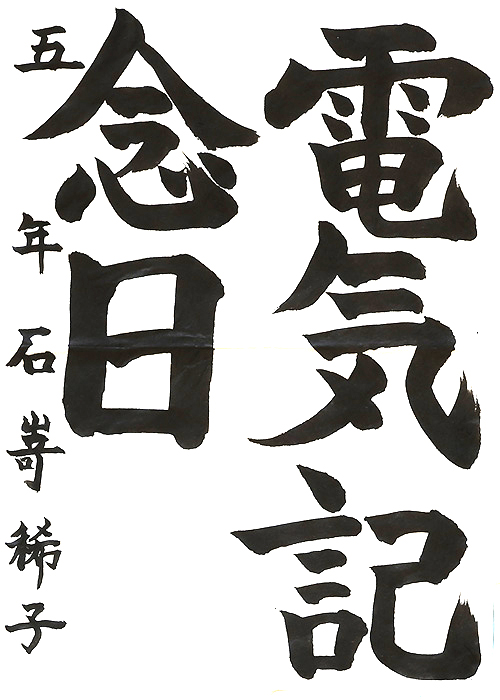 電気記
念日
五年 石嵜稀子